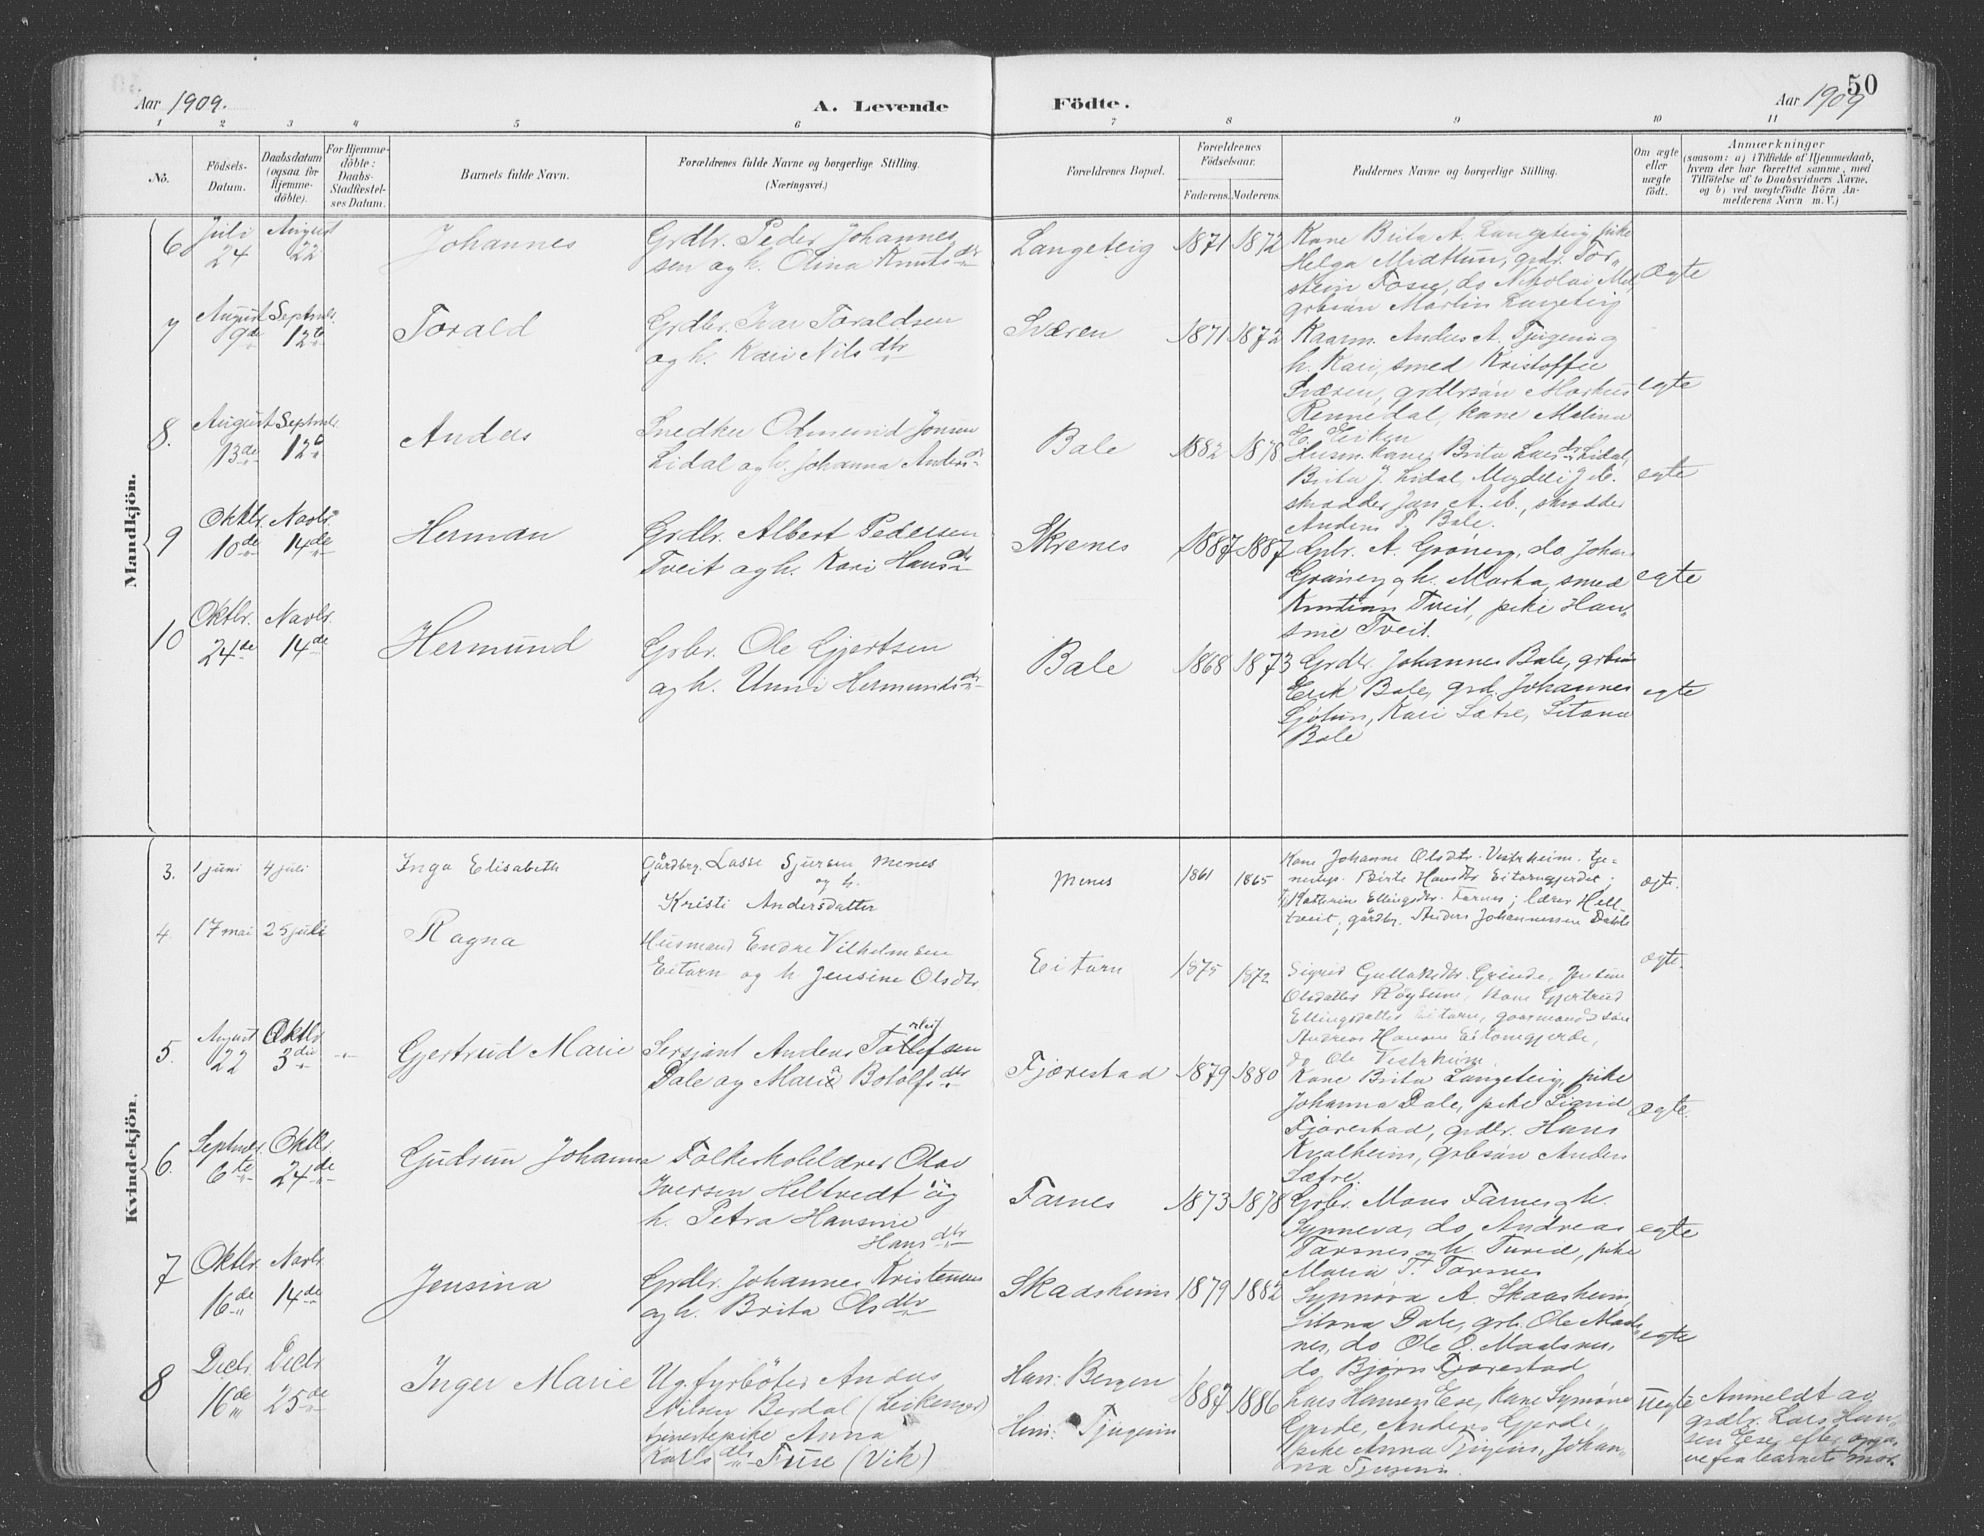 Aar 1909.
A. Levende
Födte.
Aar 1909
50
1 2 3 4 5 6 7 8 9 10 11
No.
Födsels-
Datum.
Daabsdatum
(ogsaa for
Hjemme-
döbte).
For Hjemme-
döbte:
Daabs-
Stadfæstel-
ses Datum.
Barnets fulde Navn.
Forældrenes fulde Navne og borgerlige Stilling.
(Næringsvei.)
Forældrenes Bopæl.
Forældrenes
Födselsaar.
Faderens. Moderens.
Faddernes Navne og borgerlige Stilling.
Om ægte
eller
uægte
født.
Anmærkninger
(saasom: a) i Tilfælde af Hjemmedaab,
hvem der har forrettet samme, med
Tilføielse af to Daabsvidners Navne,
og b) ved uægtefödte Börn An-
melderens Navn m. V.)
Mandkjön.
6 Juli 24 August 22 Johannes
Grdbr. Peder Johannes
sen og h. Olina Knuts dtr
Langeteig 1871 1872
Kone Brita A. Langeteig, pike
Helga Midttun, grdr. Tor-
stein Fosse, do Nikolai
grbsön Martin Langeteig
ægte
7 August 9de Septmbr. 12te Torald
Grdbr. Ivar Toraldsen
og h. Kari Nils dtr
Sværen 1871 1872
Kaarm. Anders A. Tjugum og
h. Kari, smed Kristoffer
Sværen, grdbrsön Markus
Rennedal, kone Malina
E. Eiken
egte
8. August 13de Septmbr. 12te Anders
Snedker Odmund Jonsen
Lidal og h. Johanna Anders dtr
Bale 1882 1878
Husm.kone Brita Lars dtr Lidal,
Brita J. Lidal, Magdeli J. ib.
skradder Jon A. ib., skradder
Anders P. Bale.
egte
9 Oktbr. 10de Novbr. 14de Herman
Grdbr. Albert Pedersen
Tveit og h. Kari Hans dtr
Skrenes 1887 1887
Gbr. A. Gröneng, do Johan
Gröneng og h. Marta, smed
Kristian Tveit, pike Han-
sine Tveit.
egte
10 Oktbr. 24de Novbr. 14de Hermund
Grbr. Ole Gjertsen
og h. Unni Hermunds dtr
Bale 1868 1873
Grdbr. Johannes Bale, grbsön
Erik Bale, grd. Johannes
Kari Sætre, Sitona
Bale
egte
Kvindekjön.
3. 1 juni 4 juli Inga Elisabeth
Gårdbrg. Lasse Sjursen Menes
og h.
Kristi Andersdatter
Menes 1861 1865
Kone Johanne Olsdtr. Vestrheim. tje-
nestep. Birte Hansdtr Eitorngjerdet;
Kathrine Ellingsdtr. Farnes; lærer Helt-
tveit; gårdbr. Anders Johannessen Dahle
ægte.
4. 17 mai 25 juli Ragna
Husmand Endre Vilhelmsen
Eitorn og h Jensine Olsdtr.
Eitorn 1875 1872
Sigrid Gullaksdtr. Grinde, Jensine
Olsdatter Röysum, kone Gjertrud
Ellingsdatter Eitorn, gaarmandssön
Andreas Hansen Eitorngjerde,
do Ole Vestrheim.
ægte.
5. August 22 Oktbr 3die Gjertrud Marie
Sersjant Anders Tollefsen
Dale og Maria Botolfs dtr
Fjærestad 1879 1880
Kone Brita Langeteig, pike
Johanna Dale, pike Sigrid
Fjærestad, grdbr. Hans
Kvalheim, grbsön Anders
Sætre.
ægte.
6. Septmbr. 6te Oktbr. 24de Gudrun Johanna
Folkeskolelærer Olav
Iversen Heltvedt og
h. Petra Hansine
Hans dtr
Farnes 1873 1878
Grbr. Mons Farnes og h.
Synneva, do Andreas
Farnes og h. Turid, pike
Maria T. Farnes
egte
7 Oktbr. 16de Novbr. 14de Jensina
Grdbr. Johannes Kristensen
og h. Brita Ols dtr
Skaasheim 1879 1882
Synnöva A. Skaasheim,
Sitona Dale, grb. Ole Mads-
nes, do Ole O. Madsnes,
do Björn Fjærestad
egte
8 Decbr. 16de Decbr. 25de Inger Marie
Ug. fyrböter Anders
Nilsen Berdal (Leikanger)
tjenestepike Anna
Karls dtr Fuse (Vik)
Han: Bergen
Hun: Tjugum
1887 1886
Lars Hansen Ese, kone Synöve
Gjerde, Anders Gjerde,
pike Anna Tjugum, Johan-
na Tjugum.
uegte
Anmeldt av
grdbr. Lars Han-
sen Ese efter opga-
ve fra barnets mor.